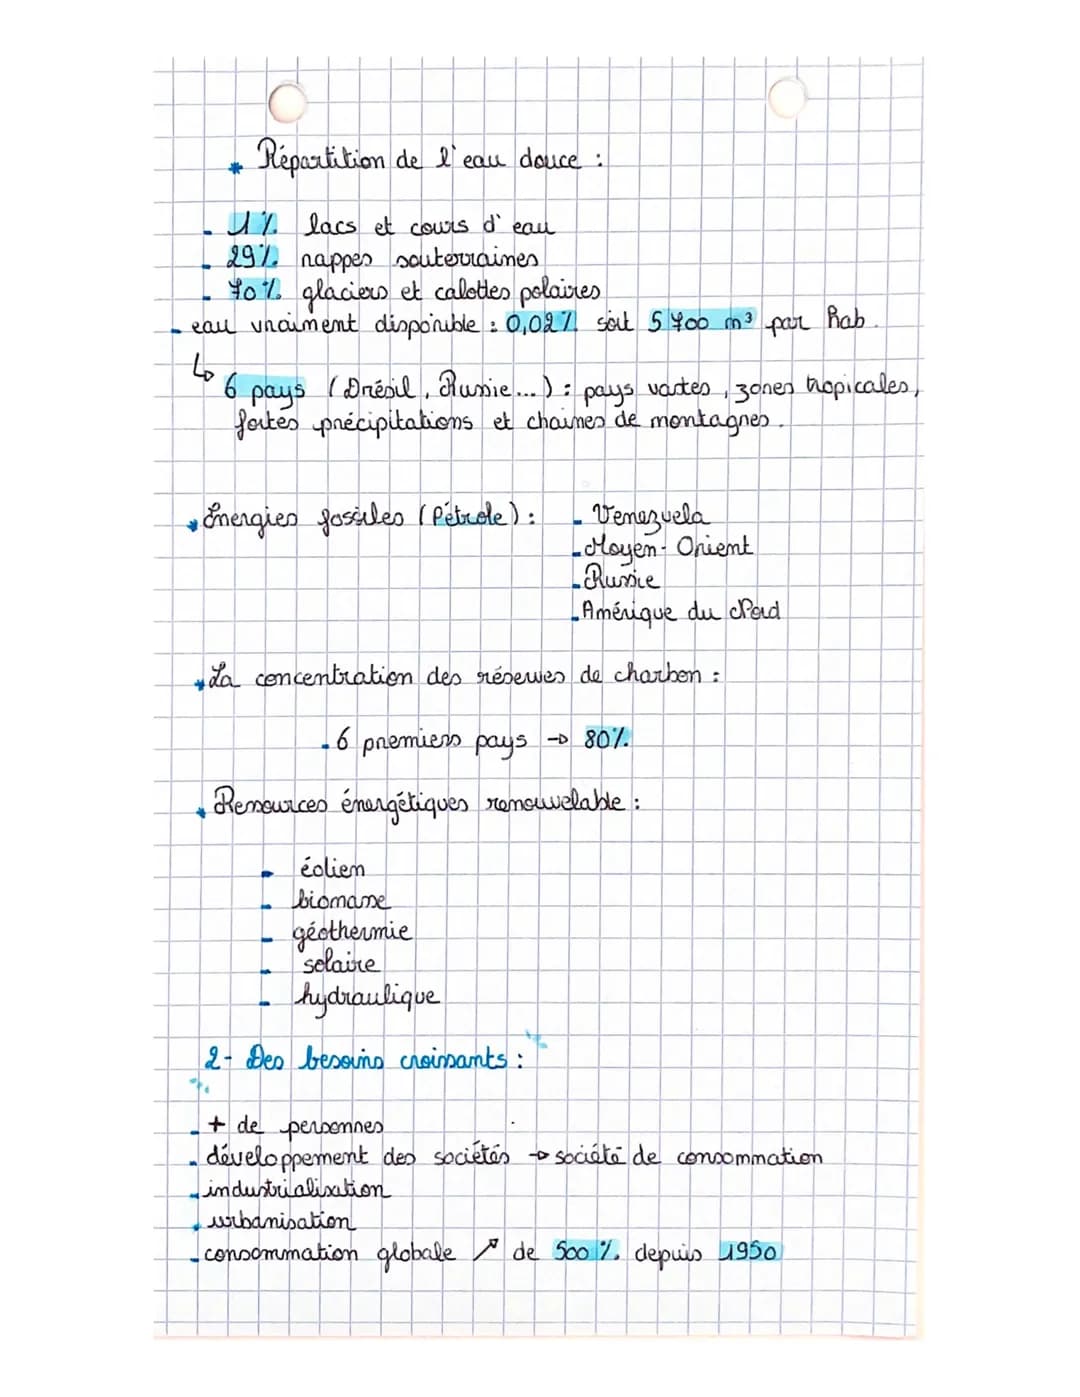 * Répartition de l'eau douce :
- 1% lacs et cours d'eau
- 29% nappes souterraines
- 70% glaciers et calottes polaires
- eau vraiment disponible : 0,02% soit 5 700 m³ par hab.
↳ 6 pays (Brésil, Russie...) : pays vastes, zones tropicales,
fortes précipitations et chaînes de montagnes.
* Énergies fossiles (Pétrole) : - Venezuela
- Moyen-Orient
- Russie
- Amérique du Nord
* La concentration des réserves de charbon :
- 6 premiers pays → 80%
* Ressources énergétiques renouvelable :
- éolien
- biomasse
- géothermie
- solaire
- hydraulique
2- Des besoins croissants :
- + de personnes
- développement des sociétés → société de consommation
- industrialisation
- urbanisation
- consommation globale ↗ de 500% depuis 1950